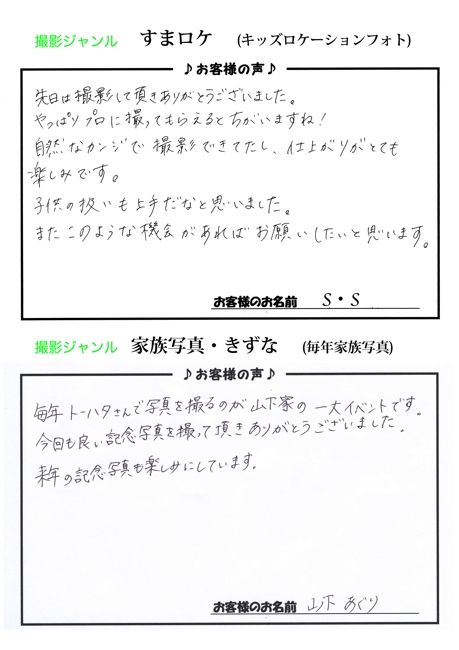 撮影ジャンル すまロケ (キッズロケーションフォト)
♪お客様の声♪
先日は撮影して頂きありがとうございました。
やっぱりプロに撮ってもらえるとちがいますね!
自然なカンジで撮影できてたし、仕上がりがとても
楽しみです。
子供の扱いも上手だなと思いました。
またこのような機会があればお願いしたいと思います。
お客様のお名前 S・S
撮影ジャンル 家族写真・きずな (毎年家族写真)
♪お客様の声♪
毎年トーハタさんで写真を撮るのが山下家の一大イベントです。
今回も良い記念写真を撮って頂きありがとうございました。
来年の記念写真も楽しみにしています。
お客様のお名前 山下 あぐり